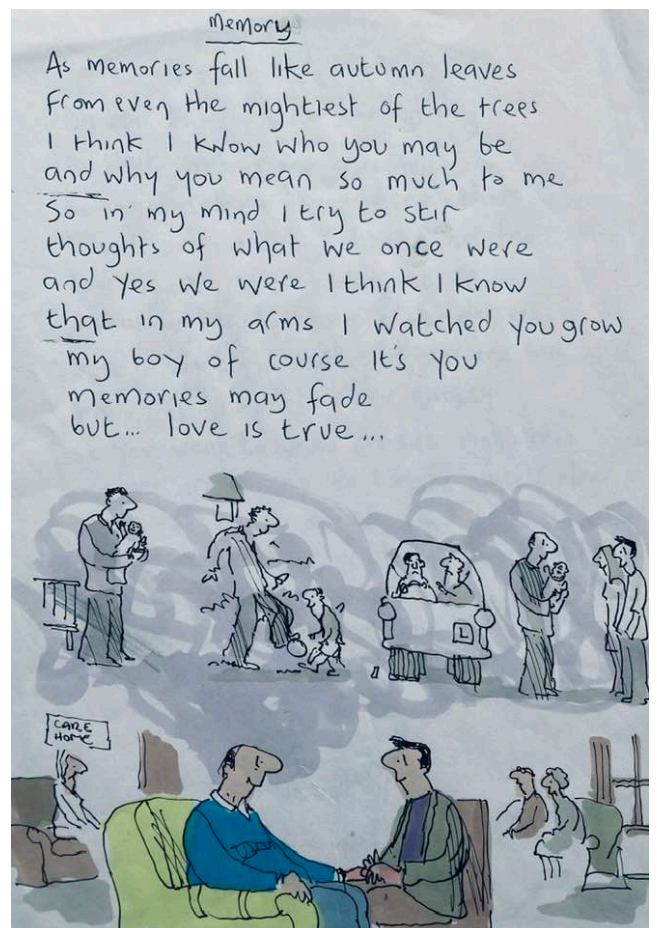 Memory
As memories fall like autumn leaves
From even the mightiest of the trees
I think I know who you may be
and why you mean so much to me
So in my mind I try to stir
thoughts of what we once were
and yes we were I think I know
that in my arms I watched you grow
my boy of course it's you
memories may fade
but... love is true...
L
CARE
HOME